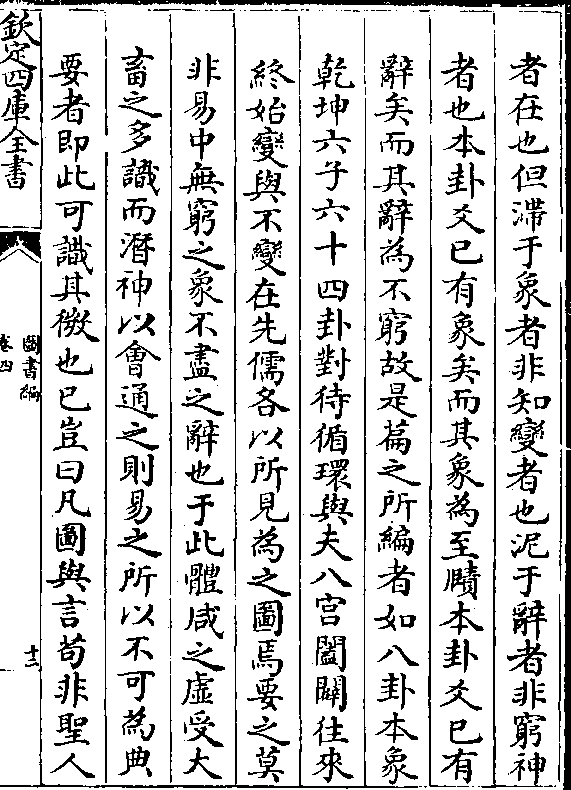 者在也但滯于象者非知變者也泥于辭者非窮神
者也本卦爻已有象矣而其象為至賾本卦爻已有
辭矣而其辭為不窮故是篇之所編者如八卦本象
乾坤六子六十四卦對待循環與夫八宫闔闢往來
終始變與不變在先儒各以所見為之圖焉要之莫
非易中無窮之象不盡之辭也于此體咸之虛受大
畜之多識而潛神以會通之則易之所以不可為典
要者即此可識其微也已豈曰凡圖與言苟非聖人
欽定四庫全書
圖書編
卷四
十三